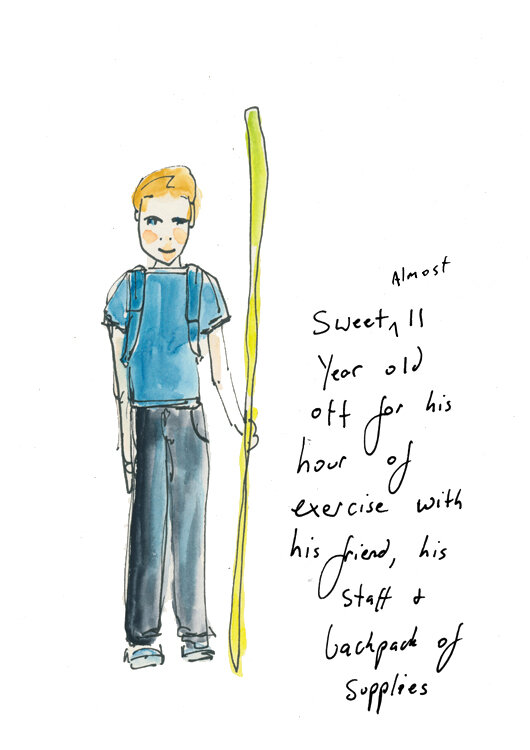 Almost
Sweet, ^ 11
Year old
off for his
hour of
exercise with
his friend, his
staff &
backpack of
Supplies